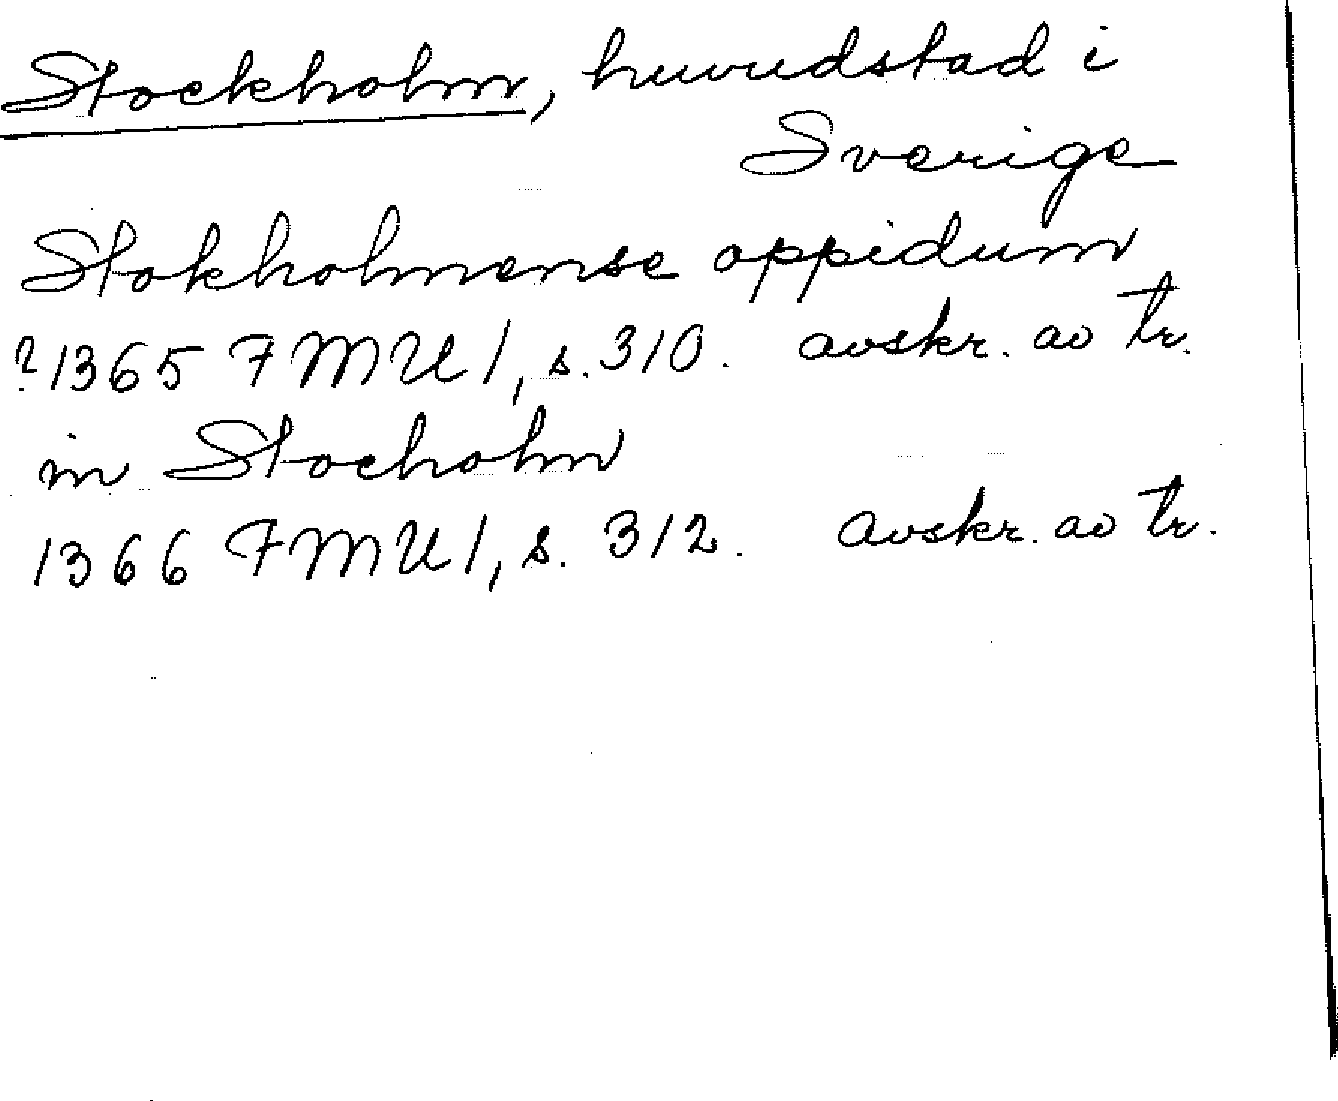 Stockholm, huvudstad i
Sverige
Stokholmense oppidum
?1365 FMU 1, s. 310. avskr. av tr.
in Stocholm
1366 FMU 1, s. 312. avskr. av tr.